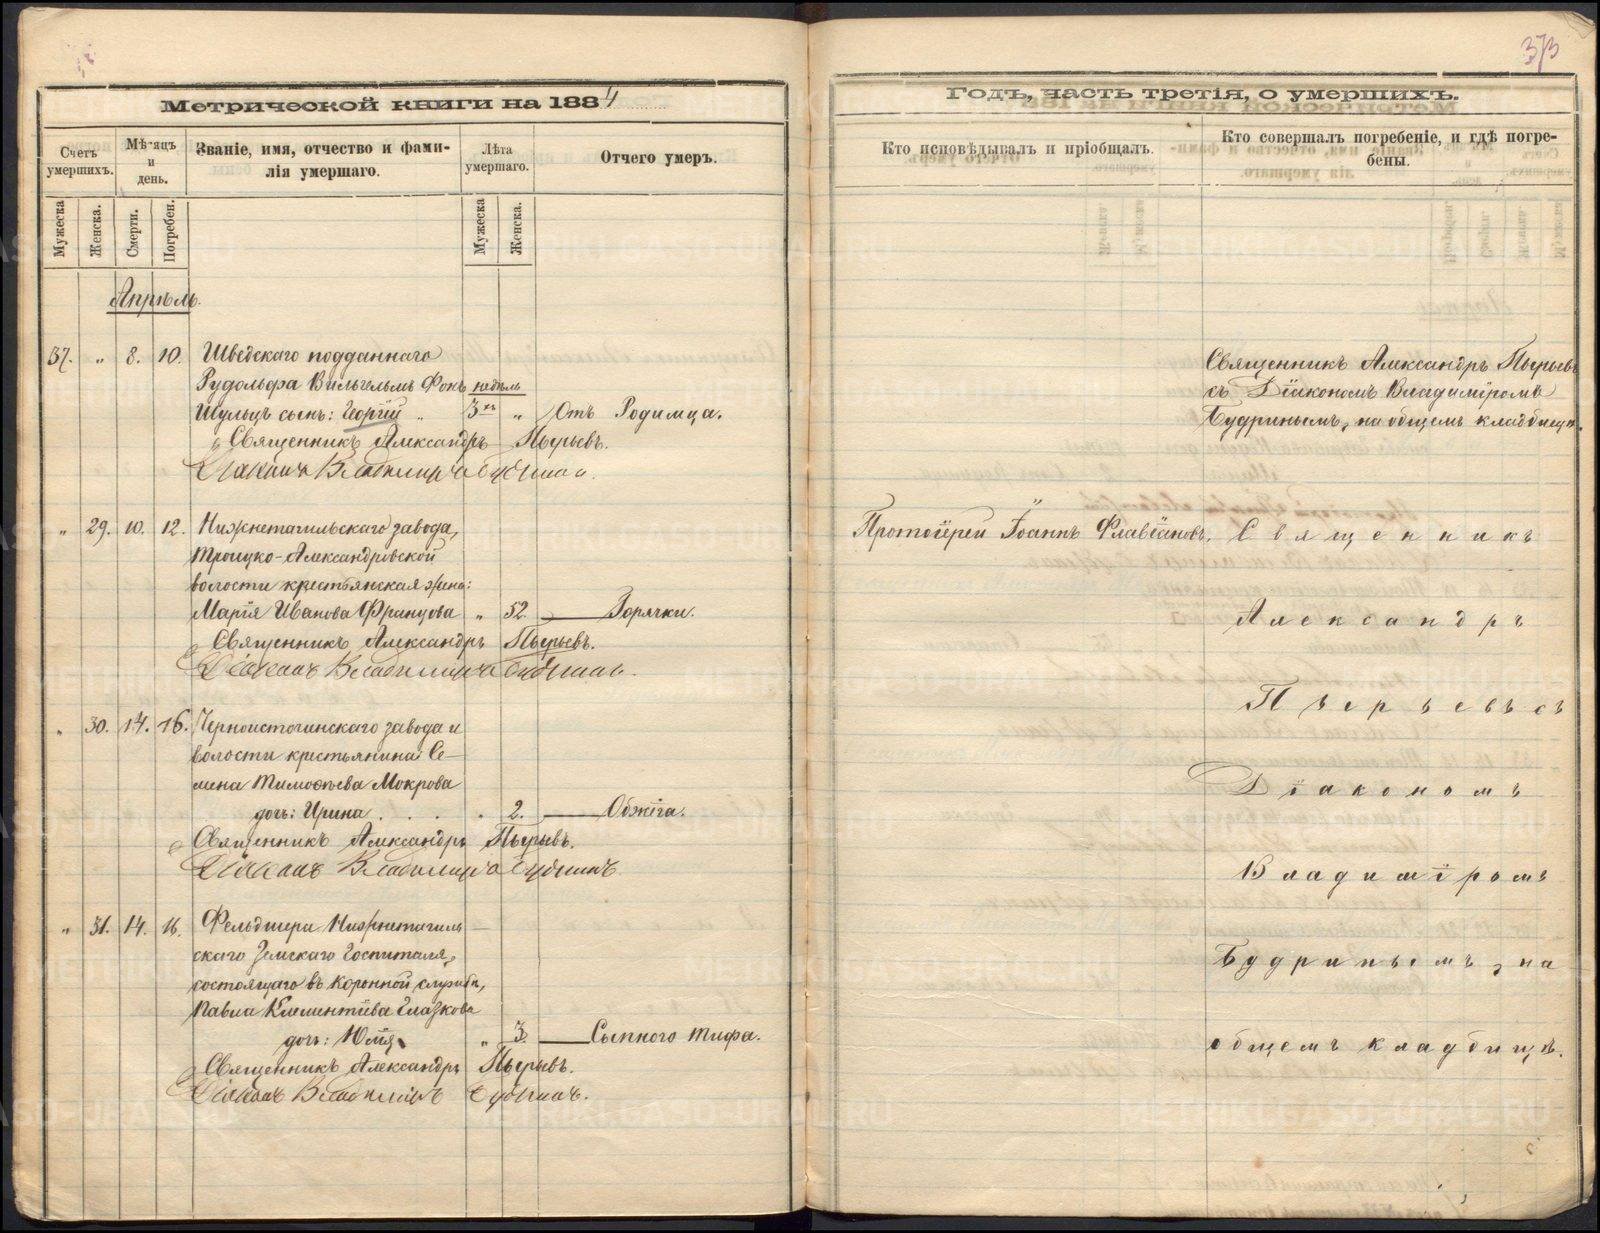 Метрической книги на 1884
Счетъ умершихъ.
Мѣсяцъ и день.
Званіе, имя, отчество и фами-
лія умершаго.
Лѣта умершаго.
Отчего умеръ.
Мужеска
Женска.
Смерти.
Погребен.
Мужеска
Женска.
Апрѣль.
37. „ 8. 10. Шведскаго подданнаго
Рудольфа Вильгельмъ Фонъ недѣль
Шульцъ сынъ: Георгій „ 3хъ „ Отъ Родимца.
Священникъ Александръ Пырьевъ.
Діаконъ Владиміръ Будринъ.
„ 29. 10. 12. Нижнетагильскаго завода,
Троицко-Александровской
волости крестьянская жена:
Марія Иванова Францова „ 52. Горячки.
Священникъ Александръ Пырьевъ.
Діаконъ Владиміръ Будринъ.
„ 30. 14. 16. Черноисточинскаго завода и
волости крестьянина Се-
мена Тимоѳѣева Мокрова
дочь: Ирина . . . . 2. Обжога.
Священникъ Александръ Пырьевъ.
Діаконъ Владиміръ Будринъ
„ 31. 14. 16. Фельдшера Нижнетагиль
скаго Земскаго Госпиталя,
состоящаго въ коронной службѣ,
Павла Климентіева Глазкова
дочь: Юлія „ 3. Сыпного тифа.
Священникъ Александръ Пырьевъ.
Діаконъ Владиміръ Будринъ.
373
Годъ, часть третія, о умершихъ.
Кто исповѣдывалъ и пріобщалъ.
Кто совершалъ погребеніе, и гдѣ погре-
бены.
Священникъ Александръ Пырьевъ
съ Діакономъ Владиміромъ
Будринымъ, на общемъ кладбищѣ.
Протоіерей Іоаннъ Флавіановъ. Священникъ
Александръ
Пырьевъ съ
Діакономъ
Владиміромъ
Будринымъ, на
общемъ кладбищѣ.
METRIKI.GASO-URAL.RU